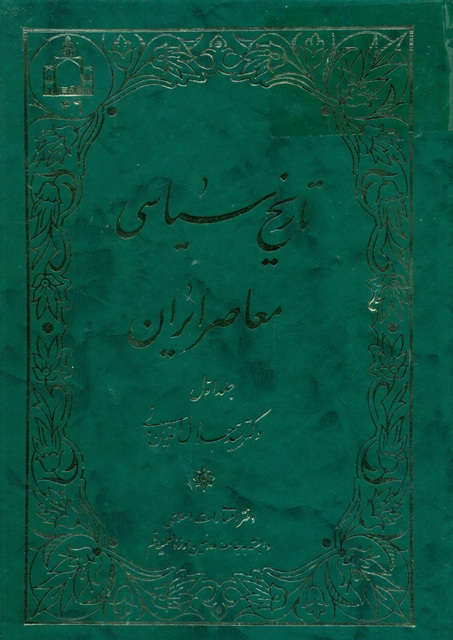 تاریخ سیاسی
معاصر ایران
جلد اول
دکتر سید جلال الدین مدنی
دفتر انتشارات اسلامی
وابسته به جامعه مدرسین حوزه علمیه قم